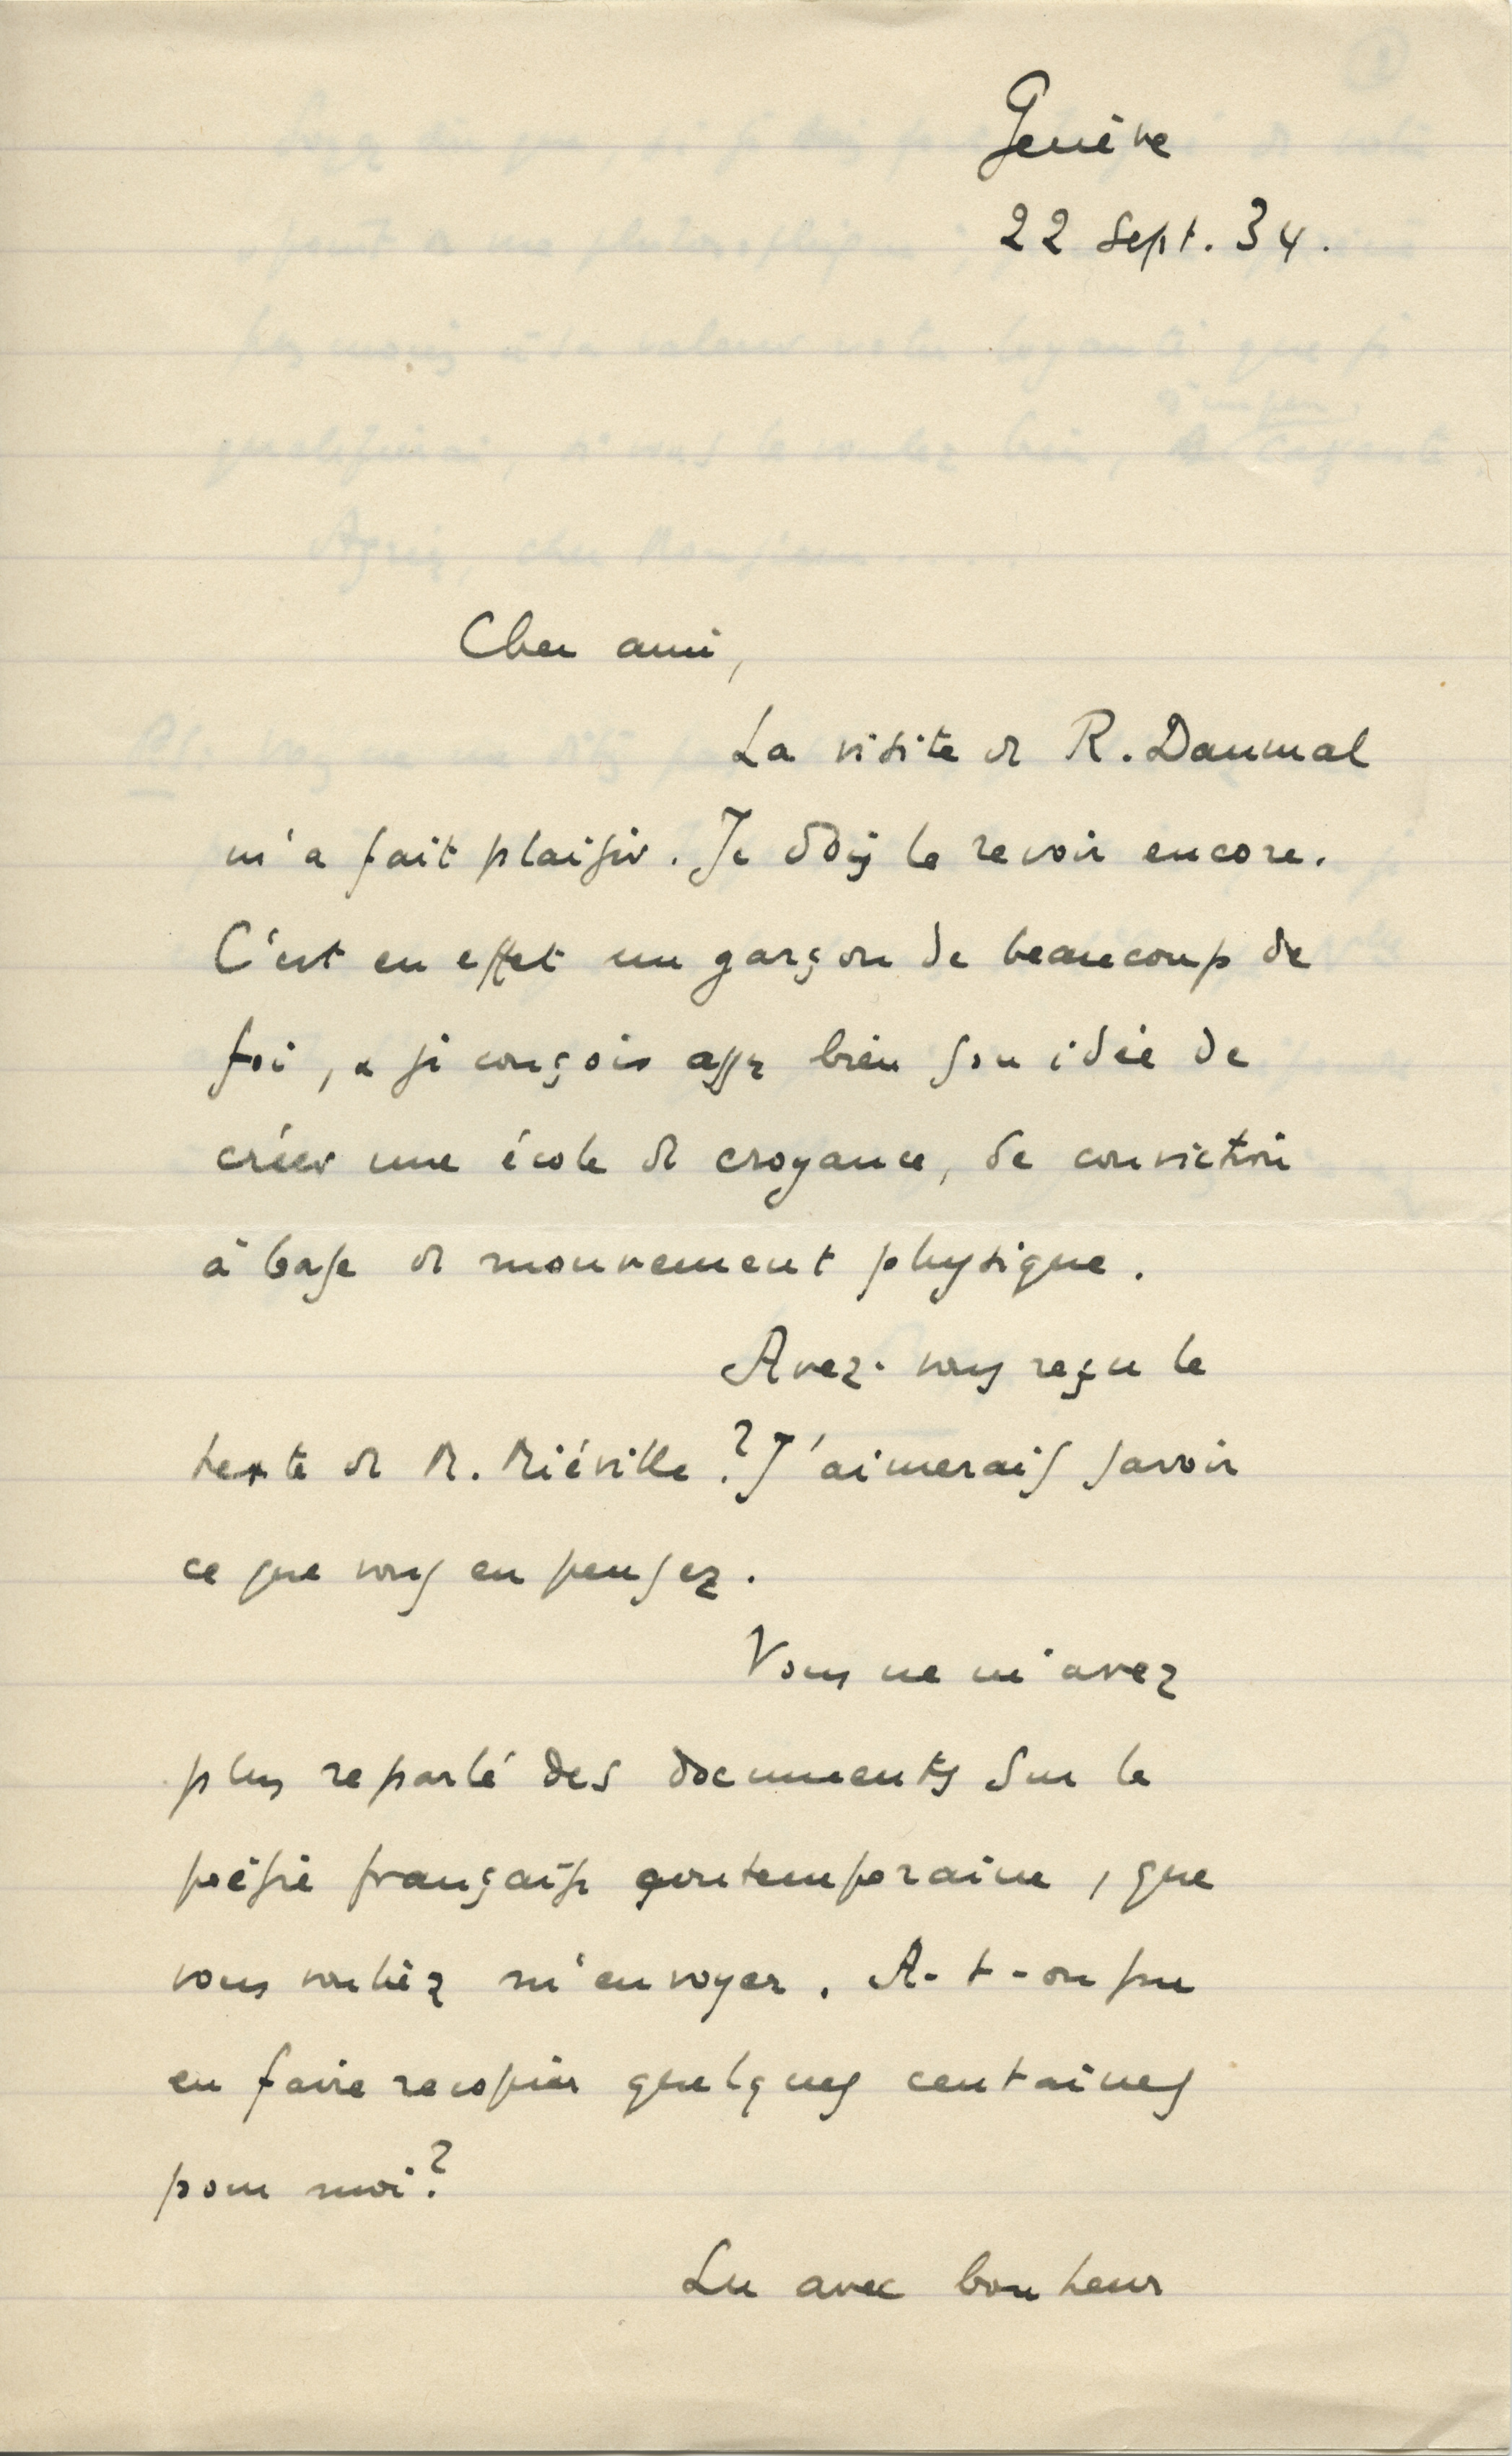 Genève
22 Sept. 34.
Cher ami,
La visite de R. Daumal
m'a fait plaisir. Je dois le revoir encore.
C'est en effet un garçon de beaucoup de
foi, et je conçois assez bien son idée de
créer une école de croyance, de conviction
à base de mouvement physique.
Avez-vous reçu le
texte de M. Miéville? J'aimerais savoir
ce que vous en pensez.
Vous ne m'avez
plus reparlé des documents sur la
poésie française contemporaine, que
vous vouliez m'envoyer. A-t-on pu
en faire recopier quelques centaines
pour moi?
Lu avec bonheur